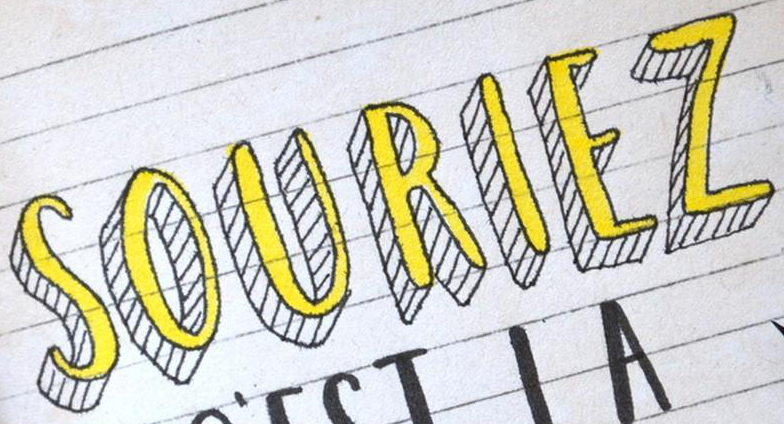 SOURIEZ
C'EST LA